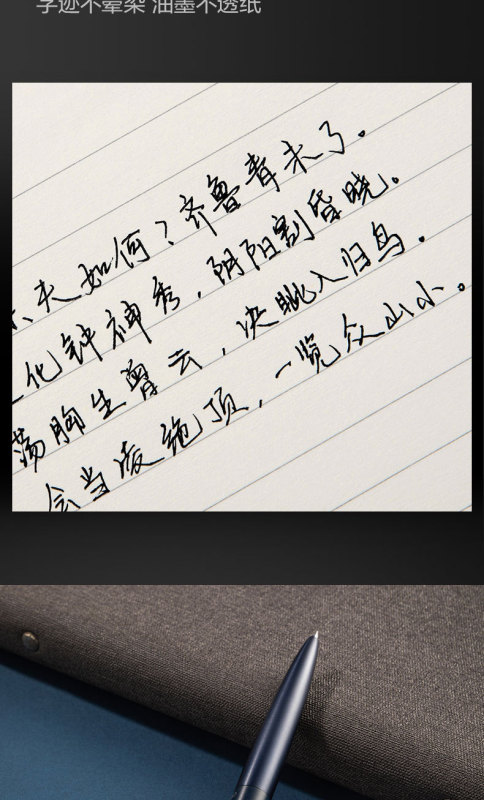 字迹不晕染 油墨不透纸
宗夫如何？齐鲁青未了。
化钟神秀，阴阳割昏晓。
荡胸生曾云，决眦入归鸟。
会当凌绝顶，一览众山小。